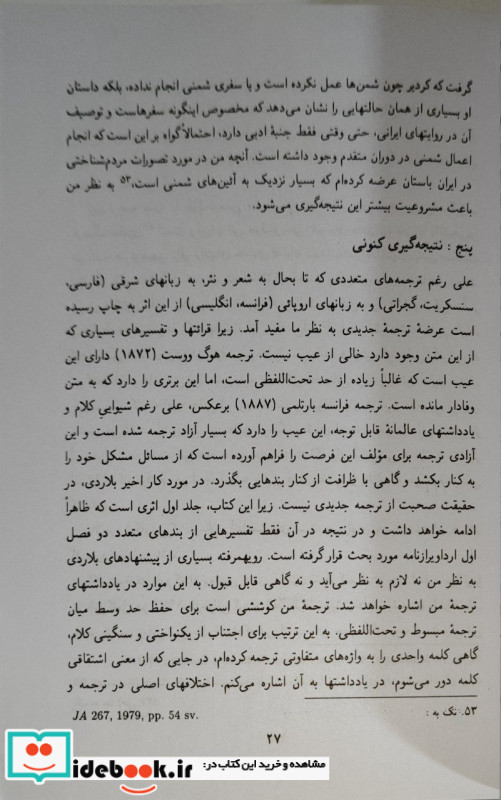 گرفت که کردیر چون شمن‌ها عمل نکرده است و یا سفری شمنی انجام نداده، بلکه داستان
او بسیاری از همان حالتهایی را نشان می‌دهد که مخصوص اینگونه سفرهاست و توصیف
آن در روایتهای ایرانی، حتی وقتی فقط جنبهٔ ادبی دارد، احتمالاً گواه بر این است که انجام
اعمال شمنی در دوران متقدم وجود داشته است. آنچه من در مورد تصورات مردم‌شناختی
در ایران باستان عرضه کرده‌ام که بسیار نزدیک به آئین‌های شمنی است،۵۳ به نظر من
باعث مشروعیت بیشتر این نتیجه‌گیری می‌شود.
پنج : نتیجه‌گیری کنونی
علی رغم ترجمه‌های متعددی که تا بحال به شعر و نثر، به زبانهای شرقی (فارسی،
سنسکریت، گجراتی) و به زبانهای اروپائی (فرانسه، انگلیسی) از این اثر به چاپ رسیده
است عرضهٔ ترجمهٔ جدیدی به نظر ما مفید آمد. زیرا قرائتها و تفسیرهای بسیاری که
از این متن وجود دارد خالی از عیب نیست. ترجمه هوگ ووست (۱۸۷۲) دارای این
عیب است که غالباً زیاده از حد تحت‌اللفظی است، اما این برتری را دارد که به متن
وفادار مانده است. ترجمه فرانسه بارتلمی (۱۸۸۷) برعکس، علی رغم شیوایی کلام و
یادداشتهای عالمانهٔ قابل توجه، این عیب را دارد که بسیار آزاد ترجمه شده است و این
آزادی ترجمه برای مؤلف این فرصت را فراهم آورده است که از مسائل مشکل خود را
به کنار بکشد و گاهی با ظرافت از کنار بندهایی بگذرد. در مورد کار اخیر بلاردی، در
حقیقت صحبت از ترجمه جدیدی نیست. زیرا این کتاب، جلد اول اثری است که ظاهراً
ادامه خواهد داشت و در نتیجه در آن فقط تفسیرهایی از بندهای متعدد دو فصل
اول ارداویرازنامه مورد بحث قرار گرفته است. رویهمرفته بسیاری از پیشنهادهای بلاردی
به نظر من نه لازم به نظر می‌آید و نه گاهی قابل قبول. به این موارد در یادداشتهای
ترجمهٔ من اشاره خواهد شد. ترجمهٔ من کوششی است برای حفظ حد وسط میان
ترجمهٔ مبسوط و تحت‌اللفظی. به این ترتیب برای اجتناب از یکنواختی و سنگینی کلام،
گاهی کلمه واحدی را به واژه‌های متفاوتی ترجمه کرده‌ام، در جایی که از معنی اشتقاقی
کلمه دور می‌شوم، در یادداشتها به آن اشاره می‌کنم. اختلافهای اصلی در ترجمه و
۵۳. نک به : JA 267, 1979, pp. 54 sv.
۲۷
مشاهده و خرید این کتاب در:
idebook.ir